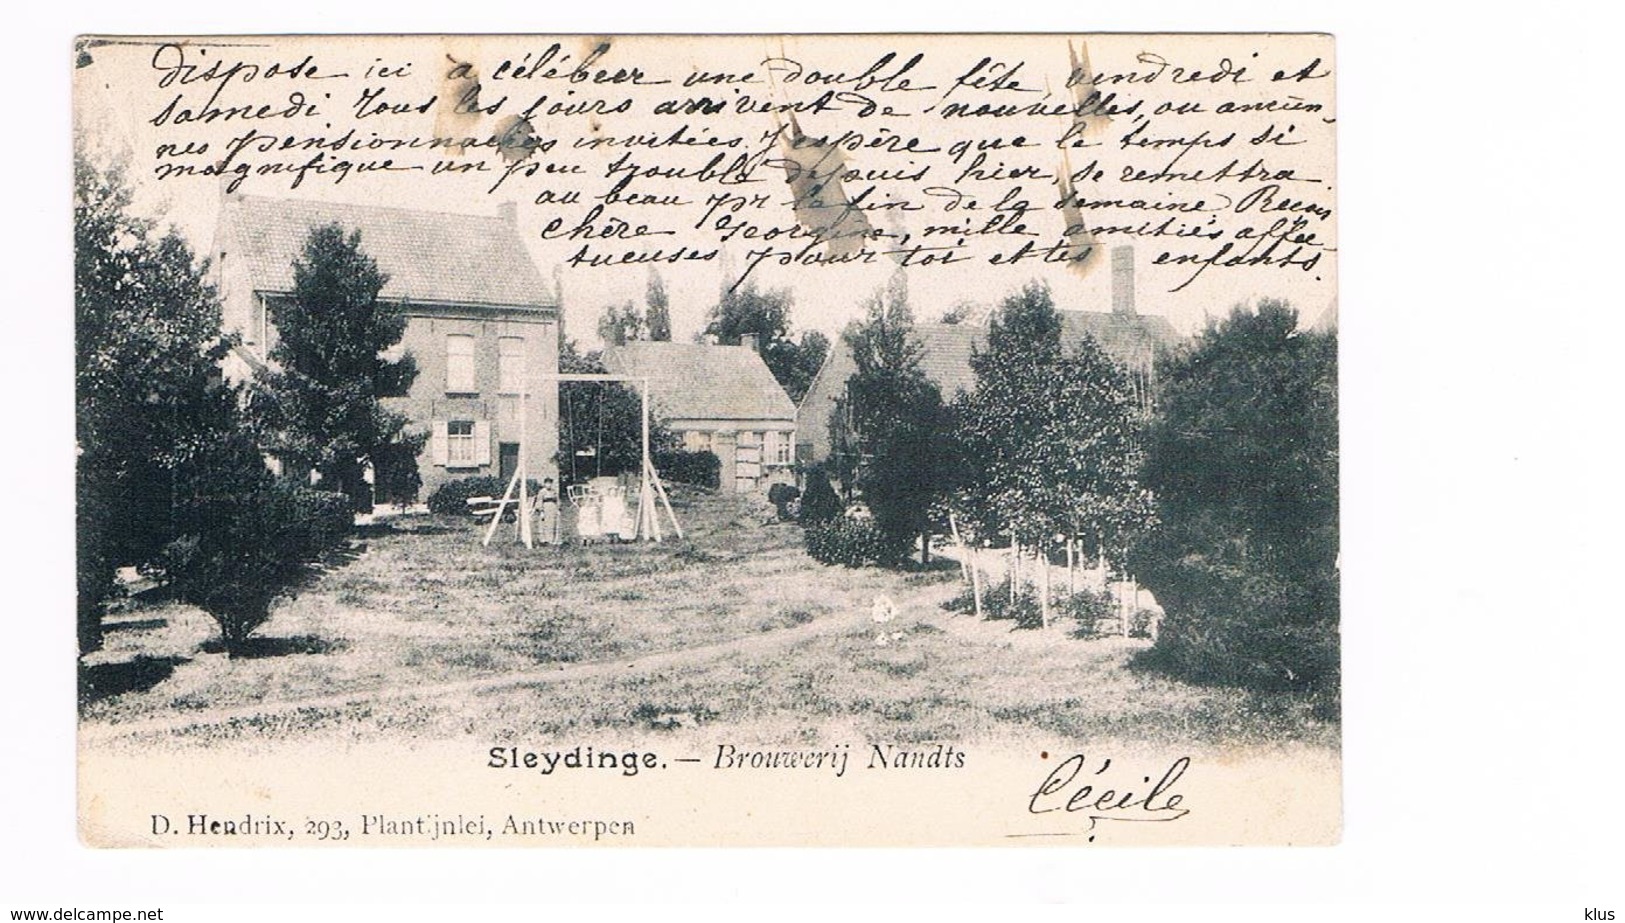 dispose ici à célébrer une double fête, vendredi et
samedi. Tous les jours arrivent de nouvelles, ou ancien-
nes pensionnaires invitées. J'espère que le temps si
magnifique un peu troublé depuis hier, se remettra
au beau pr la fin de la semaine. Reçois
chère Georgine, mille amitiés affec
tueuses pour toi et tes enfants.
Sleydinge. — Brouwerij Nandts
Cécile
D. Hendrix, 293, Plantijnlei, Antwerpen
www.delcampe.net
klus